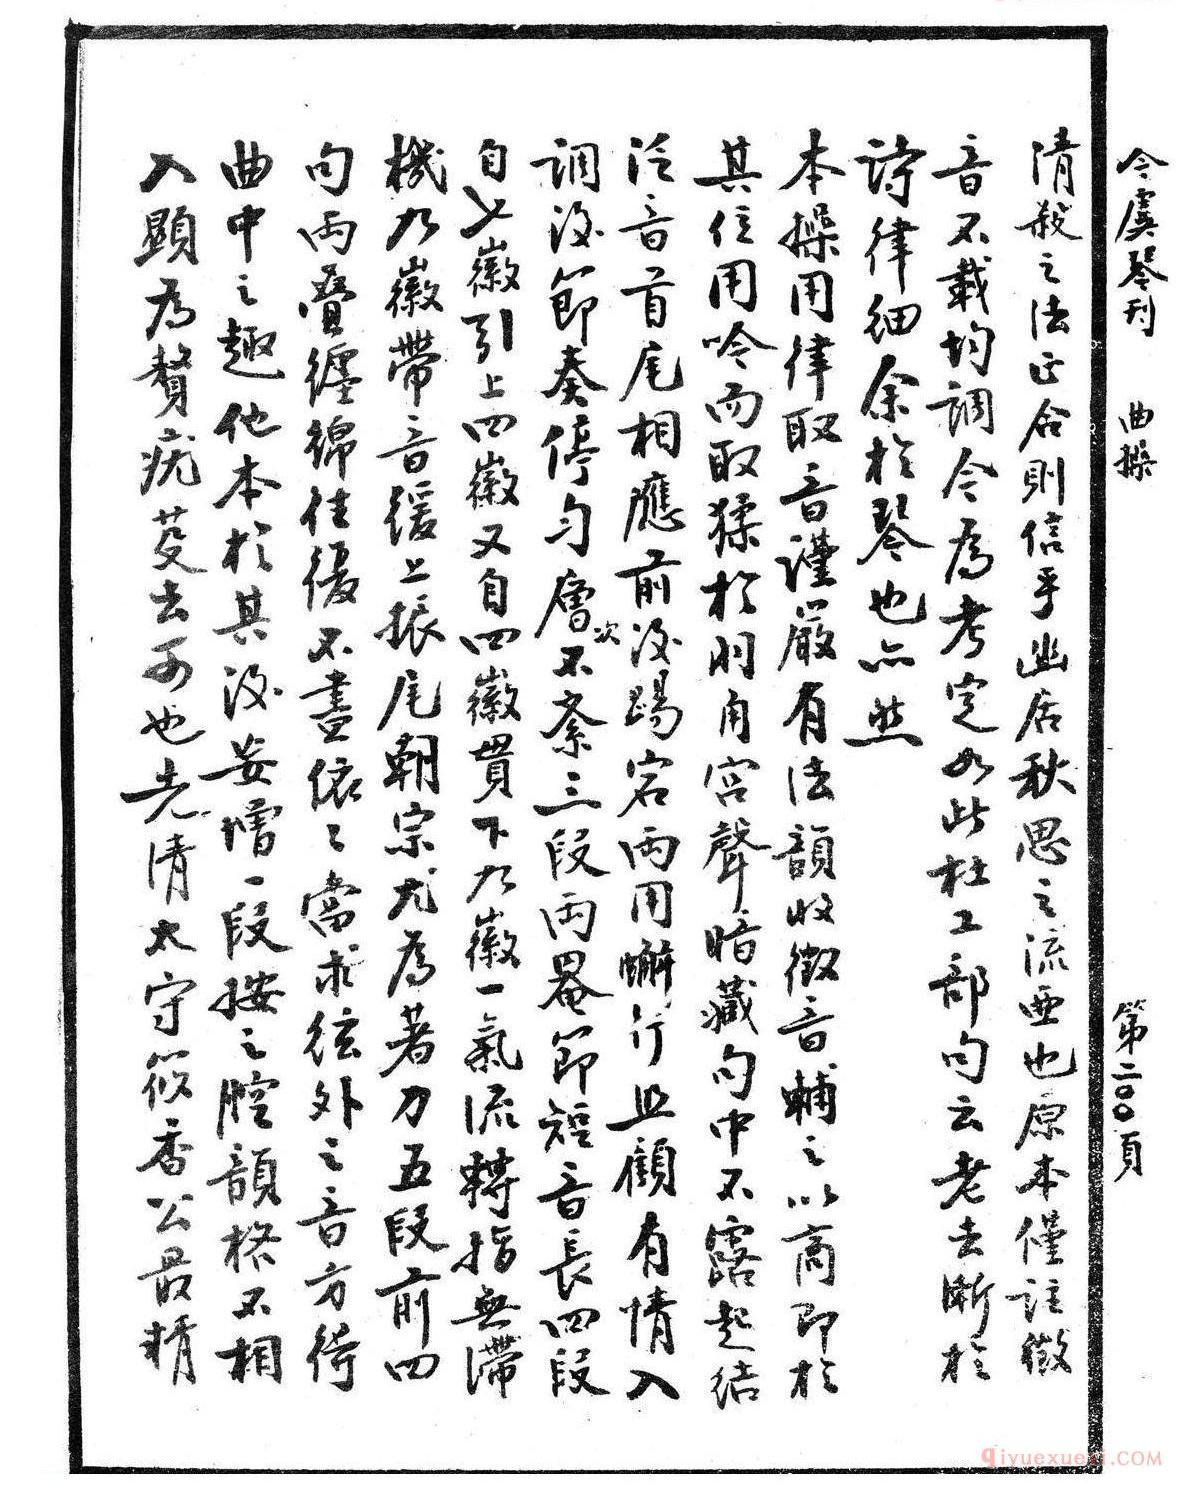 今虞琴刊　曲操　第二〇〇頁
清殺之法正合則信乎幽居秋思之流亞也原本僅註徵
音不載均調今為考定如此杜工部句云老去漸於
詩律細余於琴也亦然
本操用律取音謹嚴有法韻收徵音輔之以商即於
其位用吟而取猱於羽角宮聲暗藏句中不露起結
泛音首尾相應前後踢宕兩用蠏行且顧有情入
調後節奏停勻層次不紊三段兩罨節短音長四段
自七徽引上四徽又自四徽貫下九徽一氣流轉指無滯
機九徽帶音緩上振尾朝宗尤為著力五段前四
句兩疊纏綿往復不盡依々當求弦外之音方得
曲中之趣他本於其後妄增一段按之腔韻格不相
入顯為贅疣芟去可也先清太守筱香公最精
qiyuexuexi.COM